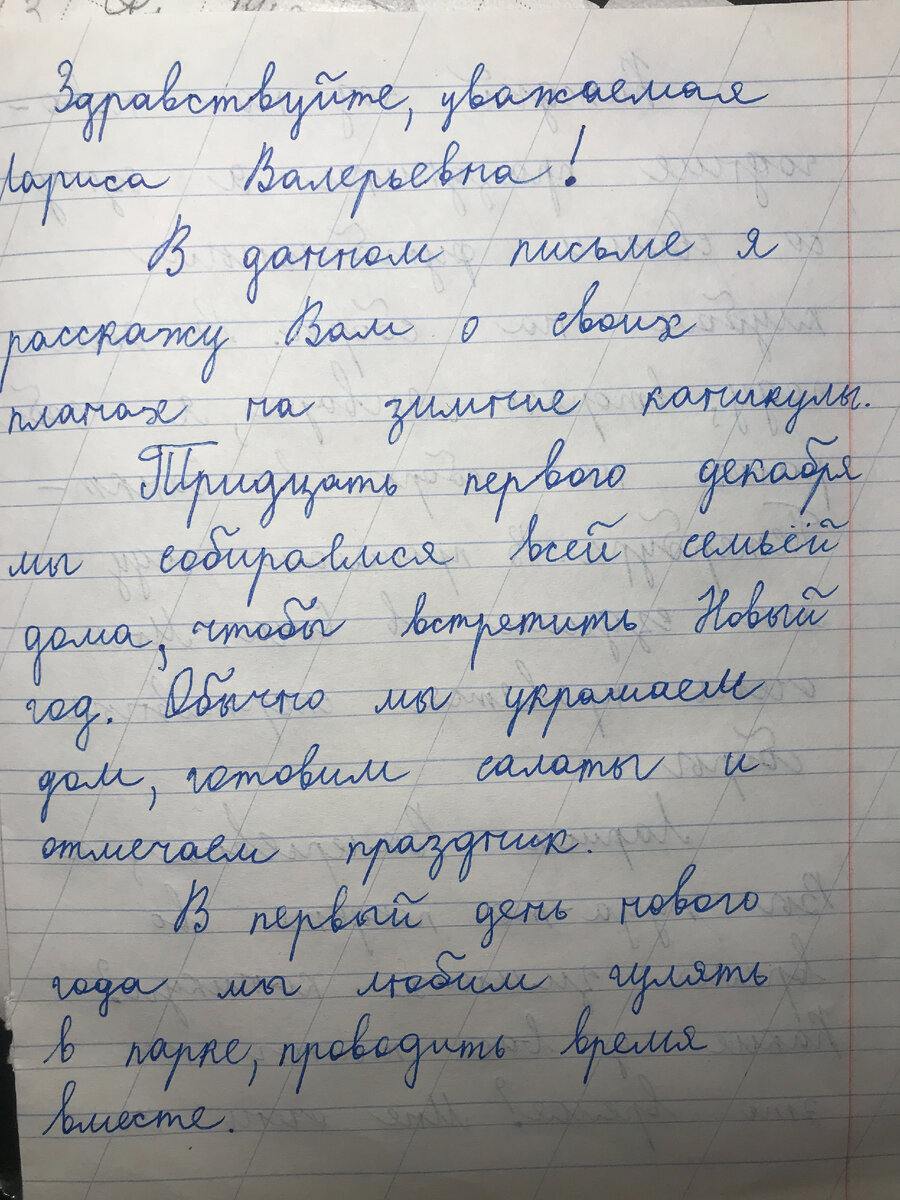 Здравствуйте, уважаемая
Лариса Валерьевна!
В данном письме я
расскажу Вам о своих
планах на зимние каникулы.
Тридцать первого декабря
мы собираемся всей семьёй
дома, чтобы встретить Новый
год. Обычно мы украшаем
дом, готовим салаты и
отмечаем праздник.
В первый день нового
года мы любим гулять
в парке, проводить время
вместе.